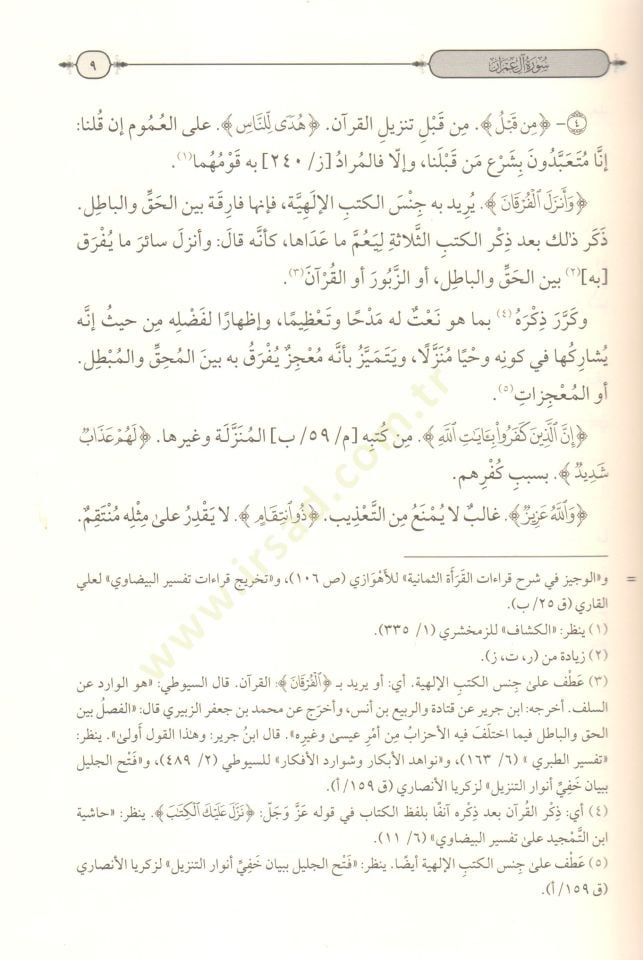 سُورَةُ آلِ عِمْرَانَ
٩
﴿٤﴾- ﴿مِن قَبْلُ﴾. مِن قَبْلِ تنزيلِ القرآن. ﴿هُدًى لِّلنَّاسِ﴾. على العُموم إن قُلنا:
إنَّا مُتَعَبَّدُونَ بِشَرْعِ مَن قَبْلَنا، وإلّا فالمُرادُ [ز/ ٢٤٠] به قَوْمُهُما(١).
﴿وَأَنزَلَ ٱلْفُرْقَانَ﴾. يُريد به جِنْسَ الكتبِ الإلٰهيَّة، فإنها فارِقة بين الحَقِّ والباطِل.
ذَكَر ذٰلك بعد ذِكْر الكتبِ الثَّلاثةِ لِيَعُمَّ ما عَدَاها، كأنَّه قالَ: وأنزل سائرَ ما يُفْرَق
[به](٢) بين الحَقِّ والباطِل، أو الزَّبُورَ أو القُرْآنَ(٣).
وكَرَّرَ ذِكْرَهُ(٤) بما هو نَعْتٌ له مَدْحًا وتَعْظِيمًا، وإظهارًا لفَضْلِه مِن حيثُ إنَّه
يُشارِكُها في كونِه وحْيًا مُنَزَّلًا، ويَتَميَّزُ بأنَّه مُعْجِزٌ يُفْرَقُ به بينَ المُحِقِّ والمُبْطِل.
أو المُعْجِزاتِ(٥).
﴿إِنَّ ٱلَّذِينَ كَفَرُوا۟ بِـَٔايَٰتِ ٱللَّهِ﴾. مِن كُتبِه [م/ ٥٩/ ب] المُنَزَّلَة وغيرِها. ﴿لَهُمْ عَذَابٌ
شَدِيدٌ﴾. بسببِ كُفْرِهم.
﴿وَٱللَّهُ عَزِيزٌ﴾. غالبٌ لا يُمْنَعُ مِن التَّعْذِيب. ﴿ذُو ٱنتِقَامٍ﴾. لا يَقْدِرُ علىٰ مِثْلِه مُنْتَقِمٌ.
= و«الوجيز في شرح قراءات القَرَأة الثمانية» للأهْوَازي (ص ١٠٦)، و«تخريج قراءات تفسير البيضاوي» لعلي
القاري (ق ٢٥/ ب).
(١) ينظر: «الكشاف» للزمخشري (١/ ٣٣٥).
(٢) زيادة من (ر، ت، ز).
(٣) عَطْف علىٰ جنس الكتبِ الإلهية. أي: أو يريد بـ ﴿ٱلْفُرْقَانَ﴾: القرآن. قال السيوطي: «هو الوارد عن
السلف. أخرجه: ابن جرير عن قتادة والربيع بن أنس، وأخرَج عن محمد بن جعفر الزبيري قال: «الفصلُ بين
الحق والباطل فيما اختلَفَ فيه الأحزابُ مِن أَمْرِ عيسىٰ وغيره». قال ابنُ جرير: وهذا القول أَولىٰ». ينظر:
«تفسير الطبري» (٦/ ١٦٣)، و«نواهد الأبكار وشوارد الأفكار» للسيوطي (٢/ ٤٨٩)، و«فَتْح الجليل
ببيان خَفِيِّ أنوار التنزيل» لزكريا الأنصاري (ق ١٥٩/ أ).
(٤) أي: ذِكْر القُرآن بعد ذِكْره آنفًا بلفظ الكتاب في قوله عَزَّ وَجَلَّ: ﴿نَزَّلَ عَلَيْكَ ٱلْكِتَٰبَ﴾. ينظر: «حاشية
ابن التَّمْجيد علىٰ تفسير البيضاوي» (٦/ ١١).
(٥) عَطْف علىٰ جنس الكتب الإلهية أيضًا. ينظر: «فَتْح الجليل ببيان خَفِيِّ أنوار التنزيل» لزكريا الأنصاري
(ق ١٥٩/ أ).
www.irsad.com.tr